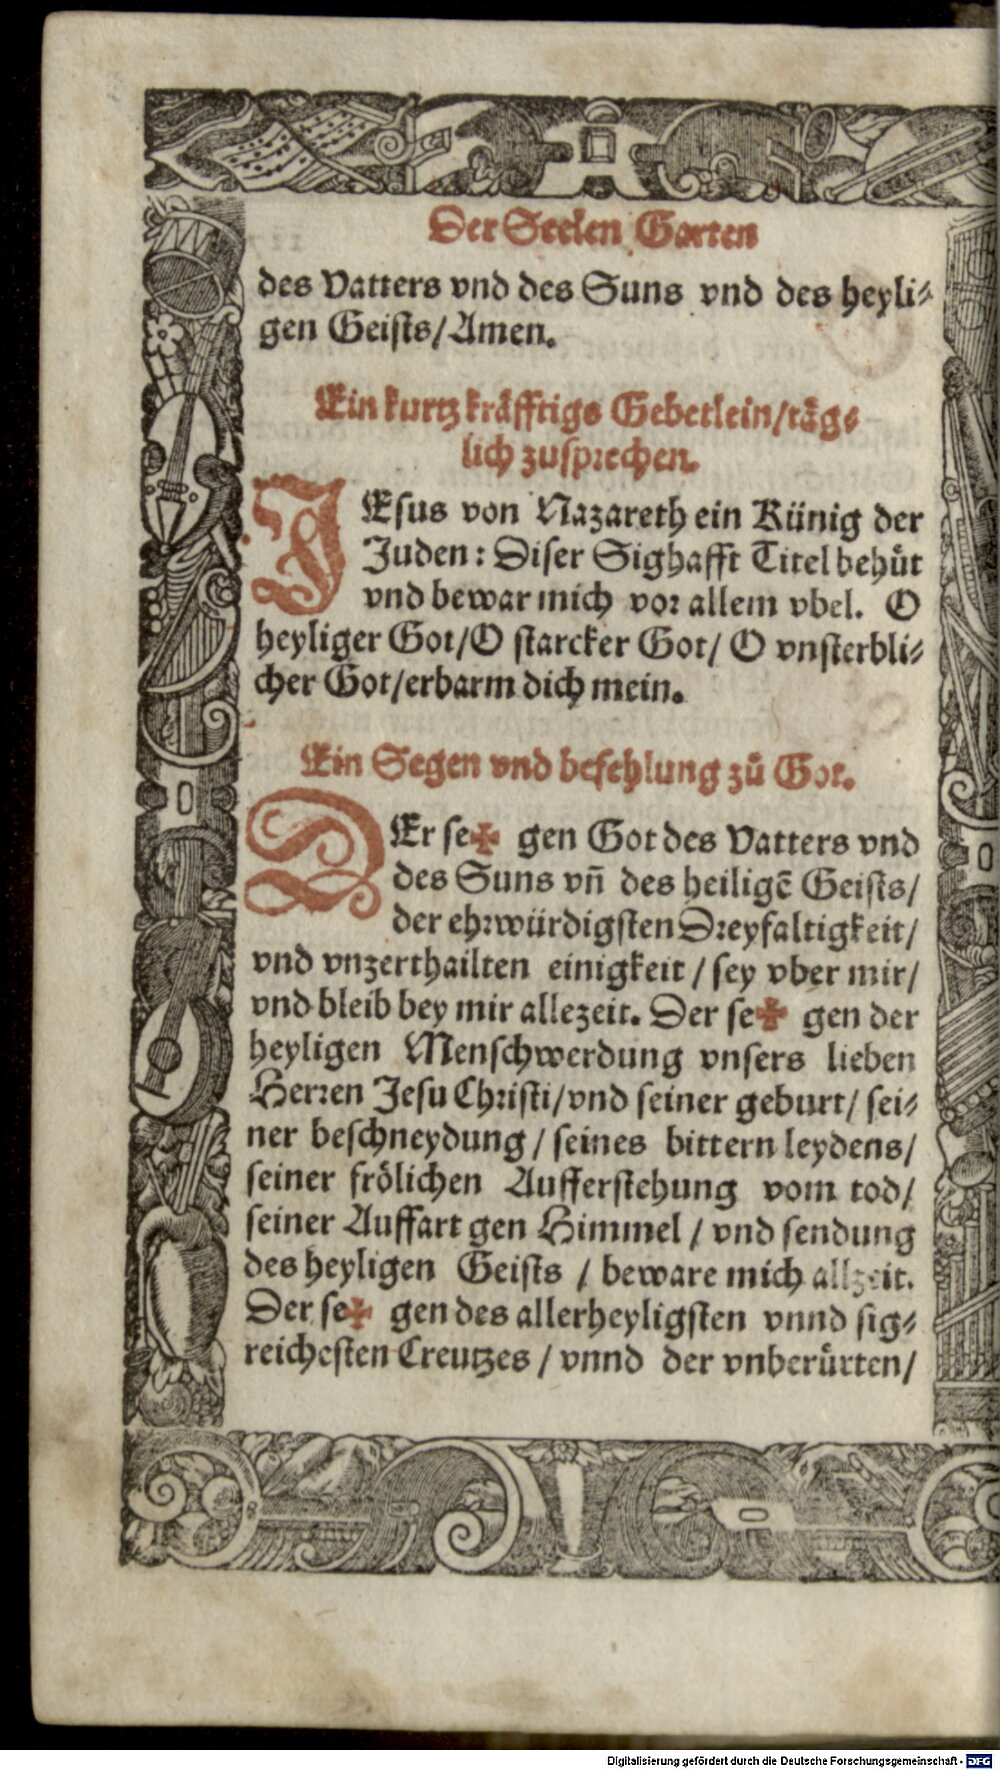 Der Seelen Garten
des Vatters vnd des Suns vnd des heyli⸗
gen Geists/Amen.
Ein kurtz kräfftigs Gebetlein/täg⸗
lich zusprechen.
JEsus von Nazareth ein Künig der
Juden: Diser Sighafft Titel behüt
vnd bewar mich vor allem vbel. O
heyliger Got/O starcker Got/ O vnsterbli⸗
cher Got/erbarm dich mein.
Ein Segen vnd befehlung zů Got.
DEr se✠ gen Got des Vatters vnd
des Suns vn̄ des heiligē Geists/
der ehrwürdigsten Dreyfaltigkeit/
vnd vnzerthailten einigkeit / sey vber mir/
vnd bleib bey mir allezeit. Der se✠ gen der
heyligen Menschwerdung vnsers lieben
Herren Jesu Christi/vnd seiner geburt/ sei⸗
ner beschneydung / seines bittern leydens/
seiner frölichen Aufferstehung vom tod/
seiner Auffart gen Himmel / vnd sendung
des heyligen Geists / beware mich allzeit.
Der se✠ gen des allerheyligsten vnnd sig⸗
reichesten Creutzes / vnnd der vnberürten/
Digitalisierung gefördert durch die Deutsche Forschungsgemeinschaft - DFG